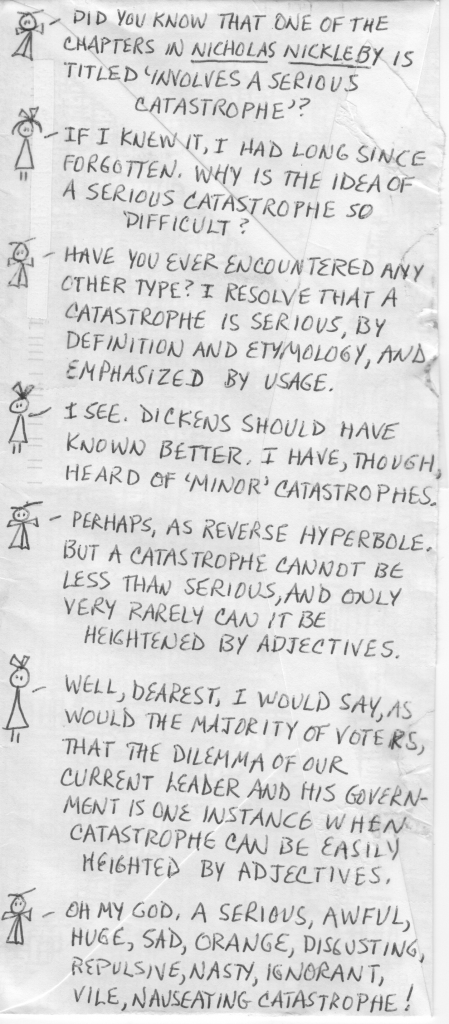 DID YOU KNOW THAT ONE OF THE
CHAPTERS IN NICHOLAS NICKLEBY IS
TITLED 'INVOLVES A SERIOUS
CATASTROPHE'?
IF I KNEW IT, I HAD LONG SINCE
FORGOTTEN. WHY IS THE IDEA OF
A SERIOUS CATASTROPHE SO
DIFFICULT?
HAVE YOU EVER ENCOUNTERED ANY
OTHER TYPE? I RESOLVE THAT A
CATASTROPHE IS SERIOUS, BY
DEFINITION AND ETYMOLOGY, AND
EMPHASIZED BY USAGE.
I SEE. DICKENS SHOULD HAVE
KNOWN BETTER. I HAVE, THOUGH,
HEARD OF 'MINOR' CATASTROPHES.
PERHAPS, AS REVERSE HYPERBOLE.
BUT A CATASTROPHE CANNOT BE
LESS THAN SERIOUS, AND ONLY
VERY RARELY CAN IT BE
HEIGHTENED BY ADJECTIVES.
WELL, DEAREST, I WOULD SAY, AS
WOULD THE MAJORITY OF VOTERS,
THAT THE DILEMMA OF OUR
CURRENT LEADER AND HIS GOVERN-
MENT IS ONE INSTANCE WHEN
CATASTROPHE CAN BE EASILY
HEIGHTED BY ADJECTIVES.
OH MY GOD. A SERIOUS, AWFUL,
HUGE, SAD, ORANGE, DISGUSTING,
REPULSIVE, NASTY, IGNORANT,
VILE, NAUSEATING CATASTROPHE!